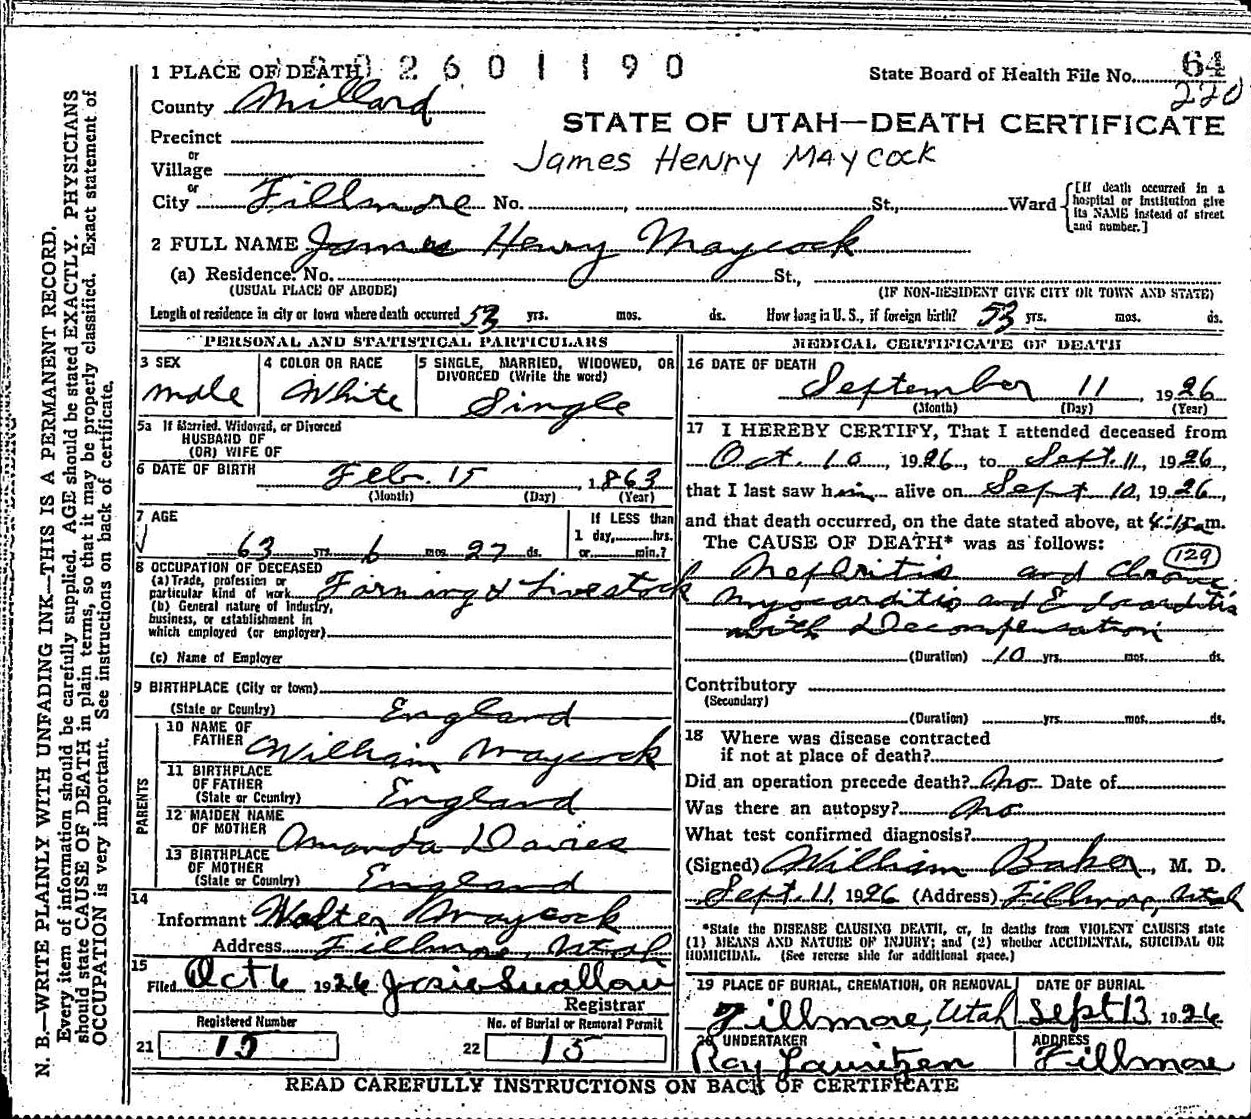 2601190
1 PLACE OF DEATH
State Board of Health File No. 64
220
County Millard
STATE OF UTAH—DEATH CERTIFICATE
Precinct
or
Village
James Henry Maycock
or
City Fillmore No. , St., Ward
[If death occurred in a hospital or institution give its NAME instead of street and number.]
2 FULL NAME James Henry Maycock
(a) Residence. No. St.,
(USUAL PLACE OF ABODE) (IF NON-RESIDENT GIVE CITY OR TOWN AND STATE)
Length of residence in city or town where death occurred 53 yrs. mos. ds. How long in U. S., if foreign birth? 53 yrs. mos. ds.
PERSONAL AND STATISTICAL PARTICULARS
3 SEX
male
4 COLOR OR RACE
White
5 SINGLE, MARRIED, WIDOWED, OR DIVORCED (Write the word)
Single
5a If Married, Widowed, or Divorced
HUSBAND OF
(OR) WIFE OF
6 DATE OF BIRTH Feb. 15, 1863
(Month) (Day) (Year)
7 AGE
63 yrs. 6 mos. 27 ds.
If LESS than
1 day, hrs.
or, min.?
8 OCCUPATION OF DECEASED
(a) Trade, profession or
particular kind of work Farming & Livestock
(b) General nature of industry,
business, or establishment in
which employed (or employer)
(c) Name of Employer
9 BIRTHPLACE (City or town)
(State or Country) England
PARENTS
10 NAME OF
FATHER William Maycock
11 BIRTHPLACE
OF FATHER
(State or Country) England
12 MAIDEN NAME
OF MOTHER Amanda Davies
13 BIRTHPLACE
OF MOTHER
(State or Country) England
14
Informant Walter Maycock
Address Fillmore, Utah
15
Filed Oct 6 1926 Josie Swallow
Registrar
Registered Number
21 15
No. of Burial or Removal Permit
22 15
MEDICAL CERTIFICATE OF DEATH
16 DATE OF DEATH
September 11, 1926
(Month) (Day) (Year)
17 I HEREBY CERTIFY, That I attended deceased from
Oct. 10, 1926, to Sept. 11, 1926,
that I last saw him alive on Sept 10, 1926,
and that death occurred, on the date stated above, at 4:15 a m.
The CAUSE OF DEATH* was as follows:
129
Nephritis and Chronic
Myocarditis and Endocarditis
with Decompensation
(Duration) 10 yrs. mos. ds.
Contributory
(Secondary)
(Duration) yrs. mos. ds.
18 Where was disease contracted
if not at place of death?
Did an operation precede death? No Date of
Was there an autopsy? No
What test confirmed diagnosis?
(Signed) William Baker, M. D.
Sept. 11, 1926 (Address) Fillmore, Utah
*State the DISEASE CAUSING DEATH, or, in deaths from VIOLENT CAUSES state
(1) MEANS AND NATURE OF INJURY; and (2) whether ACCIDENTAL, SUICIDAL OR
HOMICIDAL. (See reverse side for additional space.)
19 PLACE OF BURIAL, CREMATION, OR REMOVAL
Fillmore, Utah
DATE OF BURIAL
Sept 13 1926
20 UNDERTAKER
Roy Lauritzen
ADDRESS
Fillmore
READ CAREFULLY INSTRUCTIONS ON BACK OF CERTIFICATE
N. B.—WRITE PLAINLY WITH UNFADING INK—THIS IS A PERMANENT RECORD.
Every item of information should be carefully supplied. AGE should be stated EXACTLY. PHYSICIANS
should state CAUSE OF DEATH in plain terms, so that it may be properly classified. Exact statement of
OCCUPATION is very important. See instructions on back of certificate.